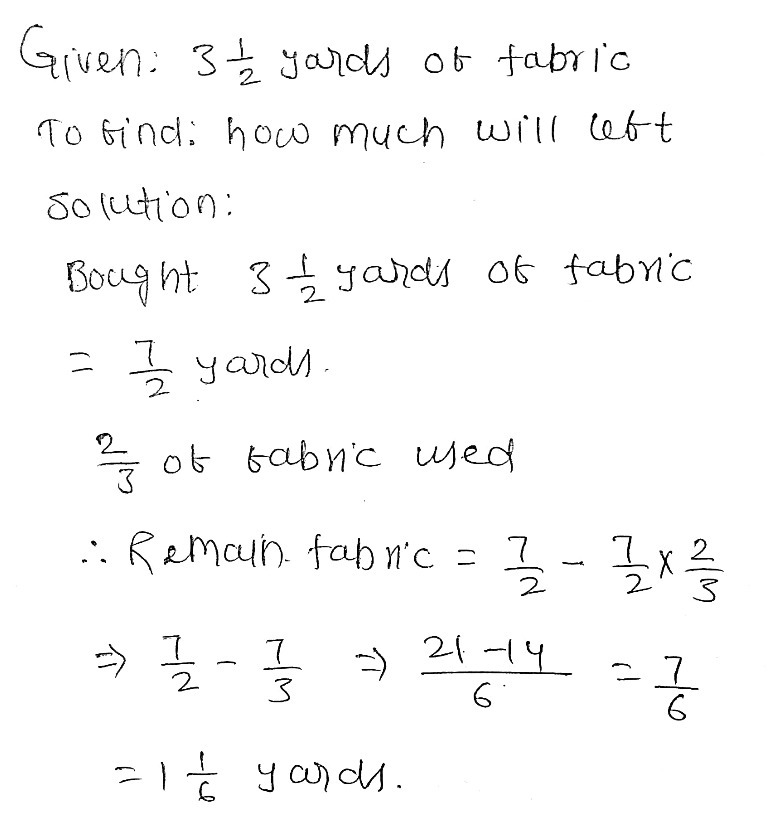 Given: 3 1/2 yards of fabric
To find: how much will left
Solution:
Bought 3 1/2 yards of fabric
= 7/2 yards.
2/3 of fabric used
∴ Remain. fabric = 7/2 - 7/2 x 2/3
⇒ 7/2 - 7/3 ⇒ 21-14/6 = 7/6
= 1 1/6 yards.